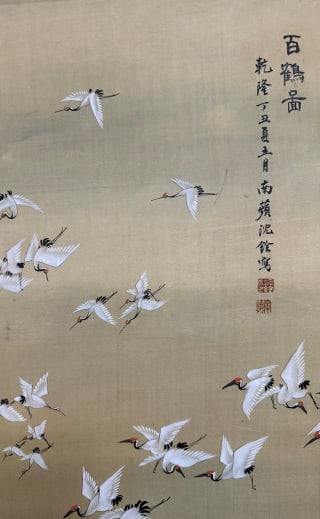 百鶴圖
乾隆丁丑夏五月南蘋沈銓寫